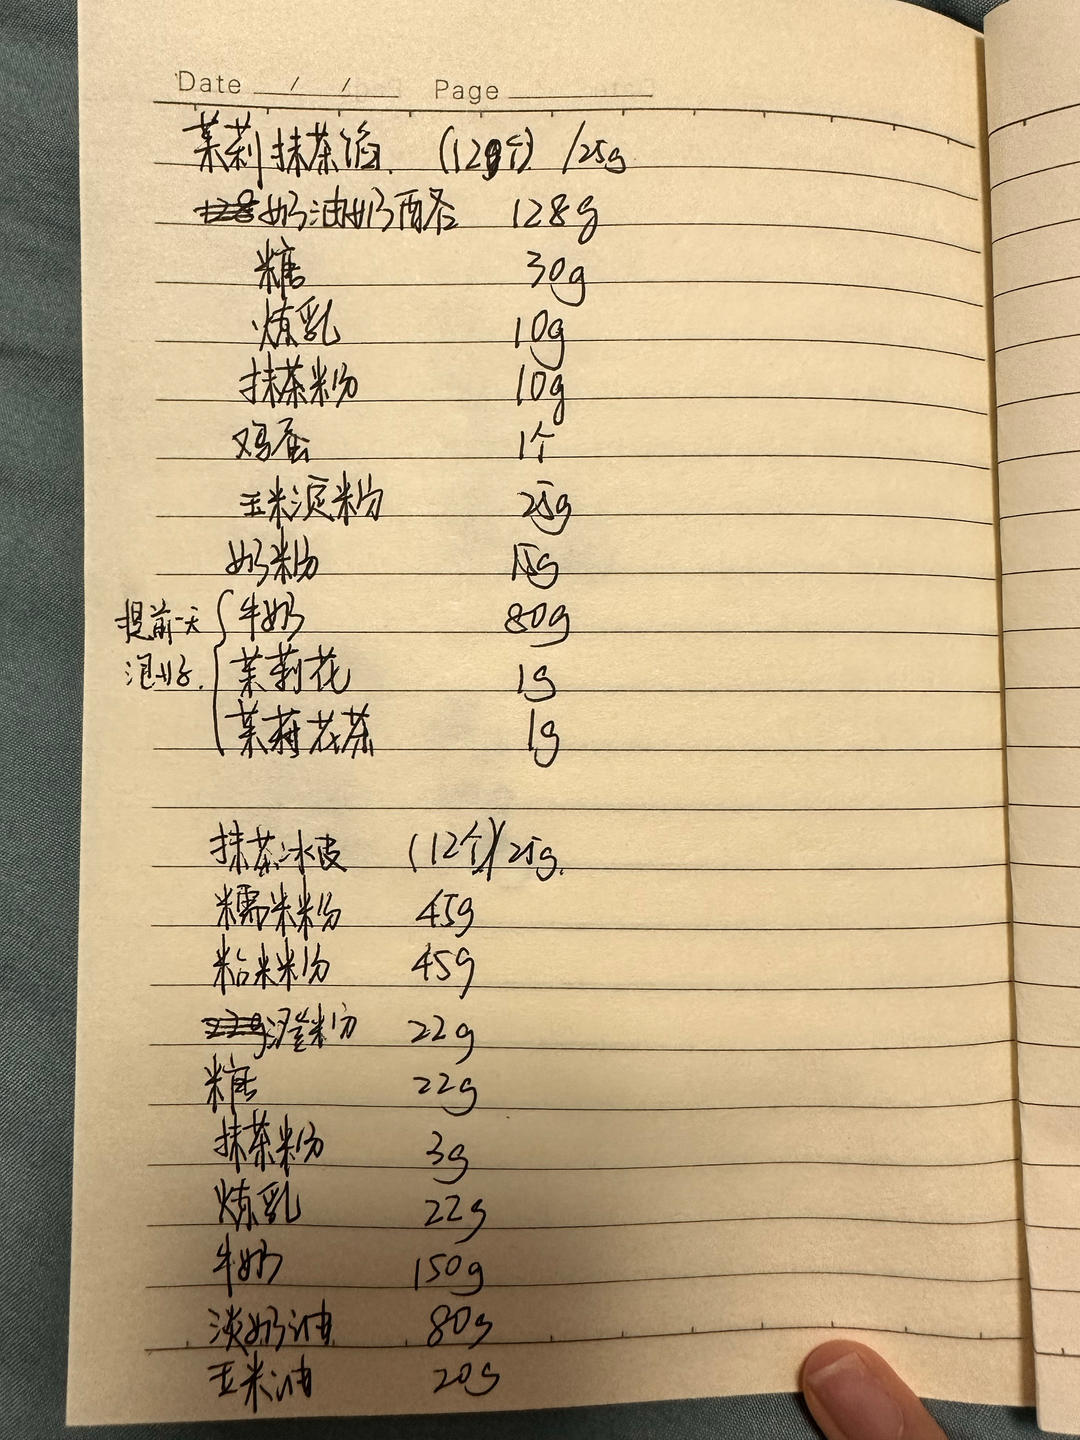 Date / / Page
茉莉抹茶馅. (12个) /25g
奶油奶酪 128g
糖 30g
炼乳 10g
抹茶粉 10g
鸡蛋 1个
玉米淀粉 25g
奶粉 15g
提前一天泡好.
牛奶 80g
茉莉花 1g
茉莉花茶 1g
抹茶冰皮 (12个)/25g.
糯米粉 45g
粘米粉 45g
澄粉 22g
糖 22g
抹茶粉 3g
炼乳 22g
牛奶 150g
淡奶油 80g
玉米油 20g